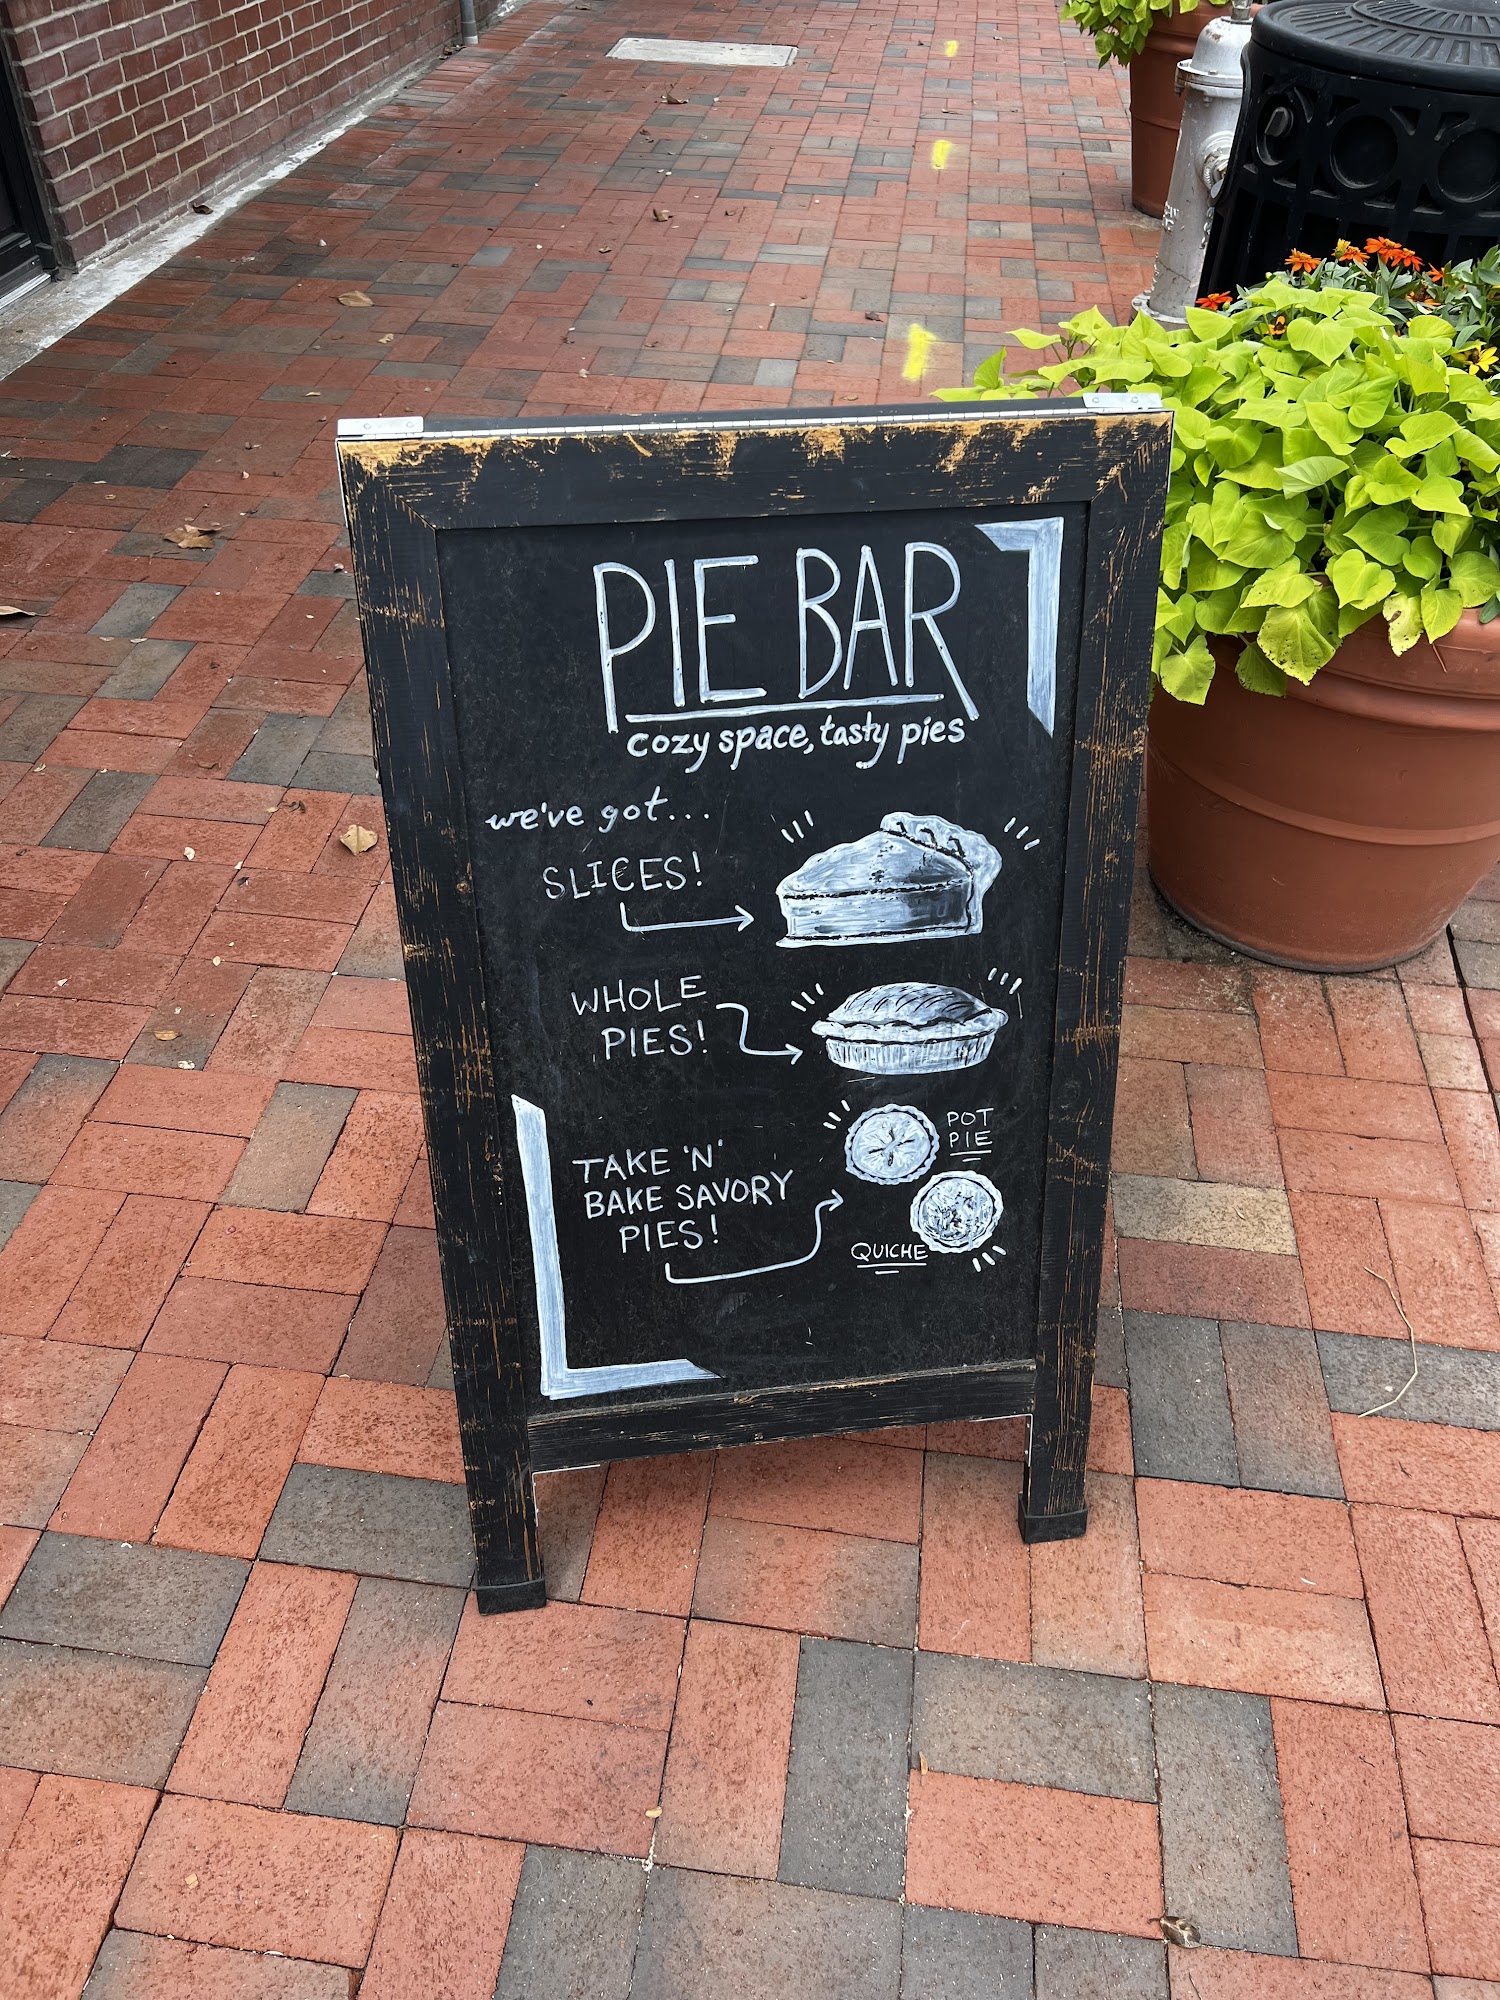 PIE BAR
cozy space, tasty pies
we've got...
SLICES!
WHOLE
PIES!
TAKE 'N'
BAKE SAVORY
PIES!
POT
PIE
QUICHE